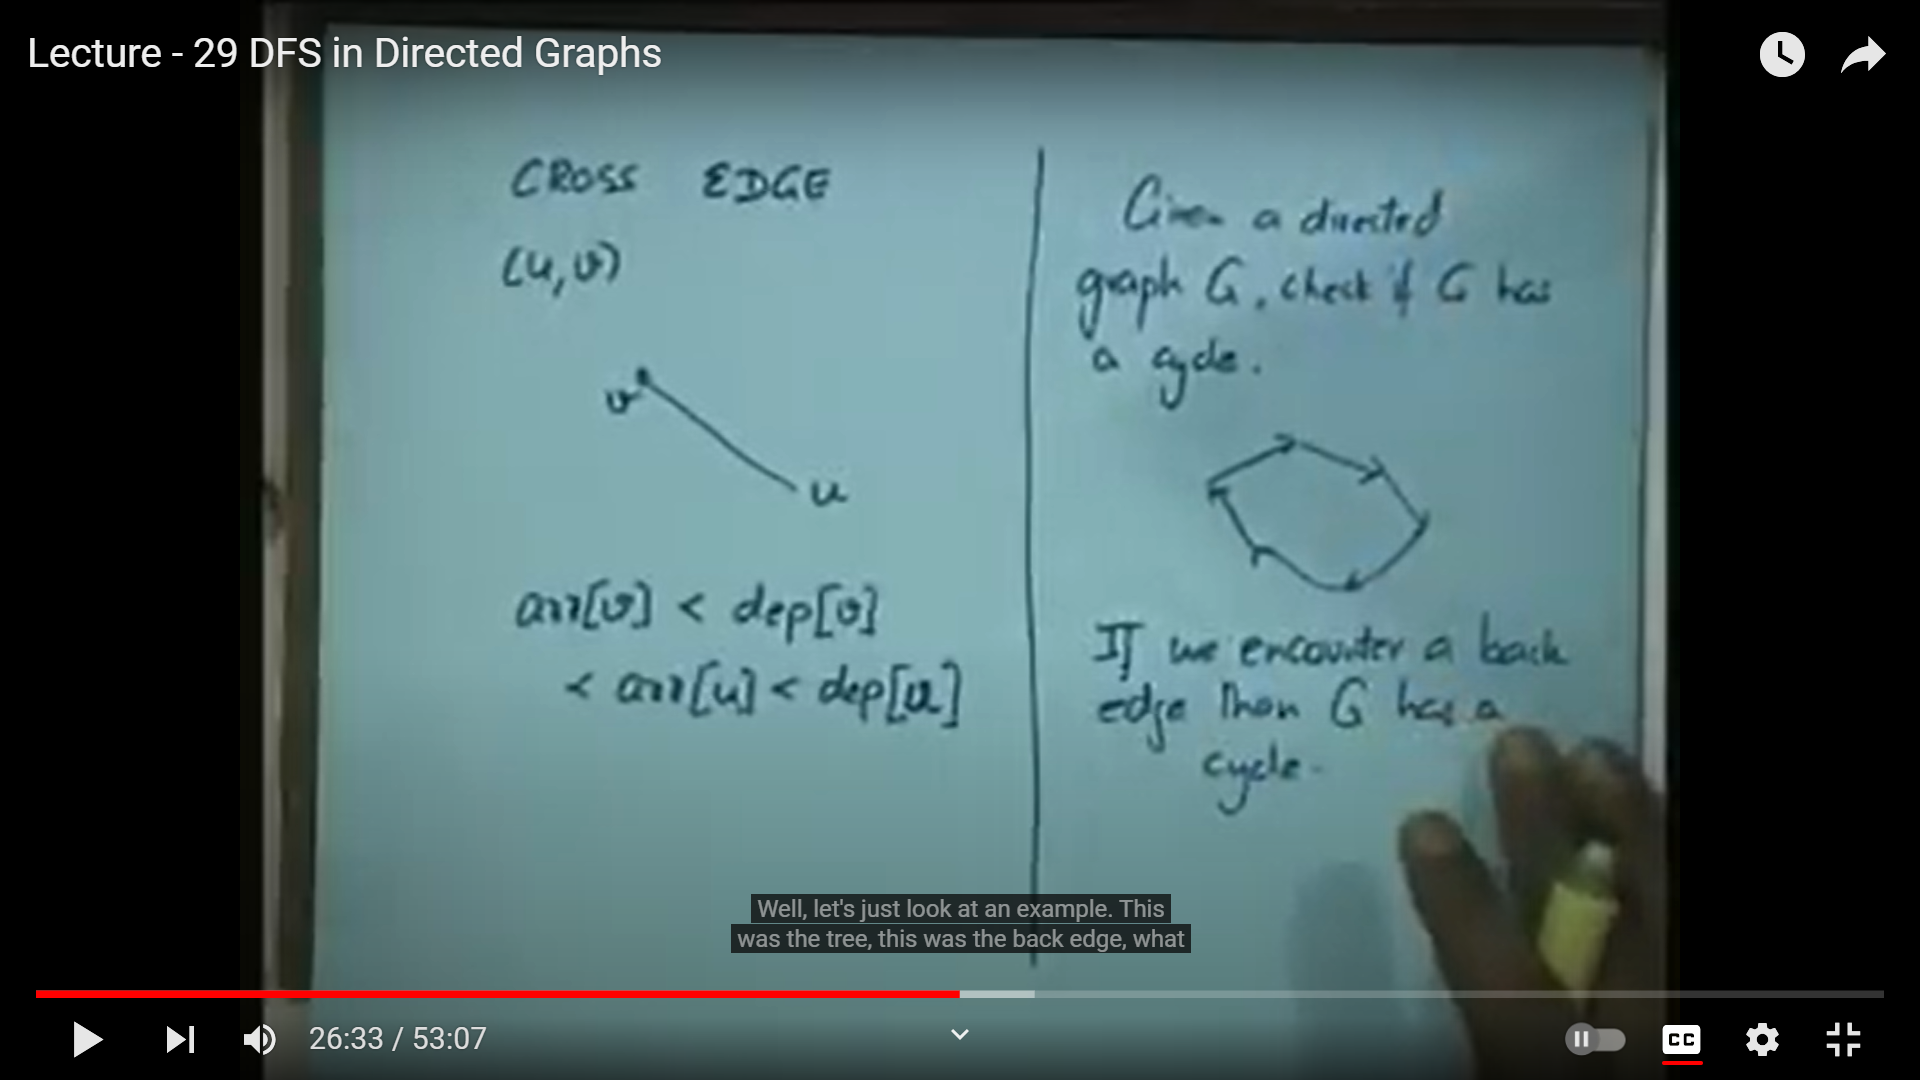 Lecture - 29 DFS in Directed Graphs
CROSS EDGE
(u,v)
v
u
arr[v] < dep[v]
< arr[u] < dep[u]
Given a directed
graph G, check if G has
a cycle.
If we encounter a back
edge then G has a
cycle.
Well, let's just look at an example. This
was the tree, this was the back edge, what
26:33 / 53:07
CC